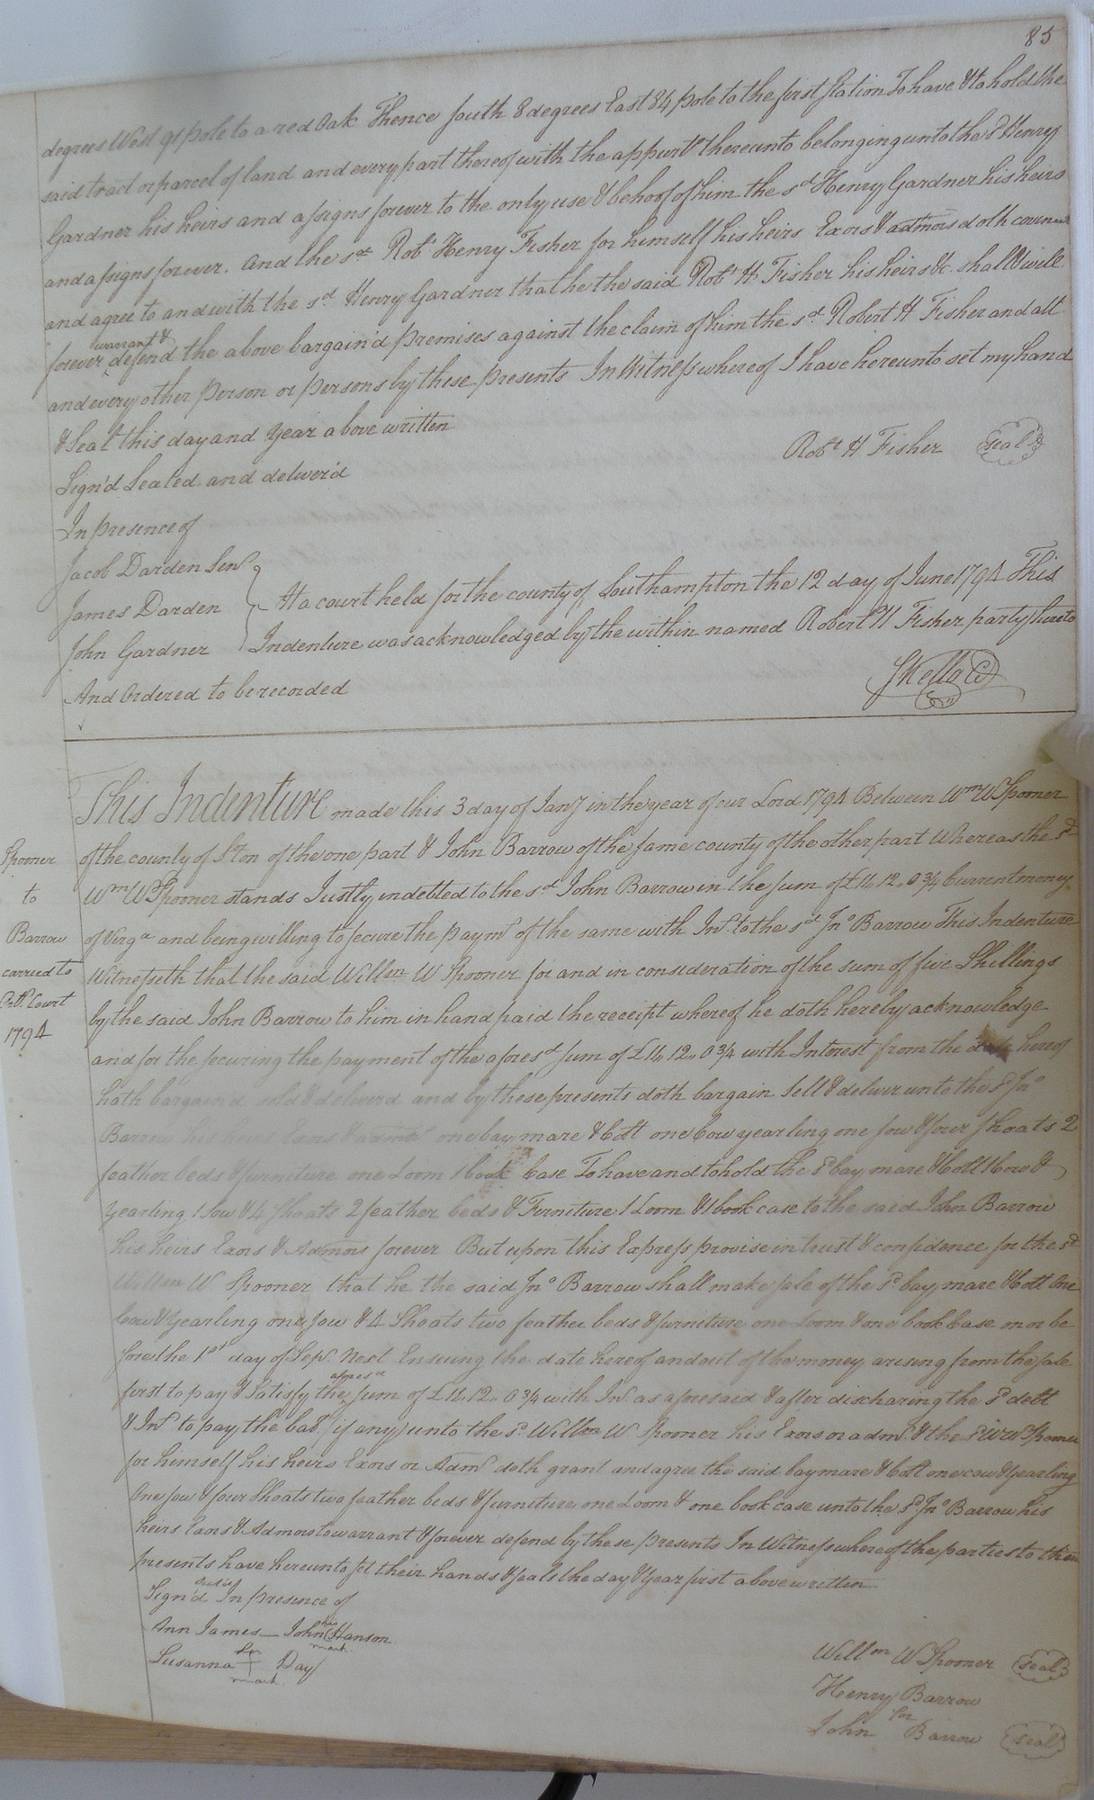 85
degrees West 91 pole to a red Oak Thence South 8 degrees East 84 pole to the first station To have & to hold the
said tract or parcel of land and every part thereof with the appurts thereunto belonging unto the sd Henry
Gardner his heirs and assigns forever to the only use & behoof of him the sd Henry Gardner his heirs
and assigns forever. And the sd Robt Henry Fisher for himself his heirs Exors & admors doth covenant
and agree to and with the sd Henry Gardner that he the said Robt H. Fisher his heirs &c. shall & will
forever warrant & defend the above bargain'd premises against the claim of him the sd Robert H Fisher and all
and every other person or persons by these presents In Witness whereof I have hereunto set my hand
& Seal this day and Year above written
Sign'd Sealed and deliver'd
Robt H Fisher seal
In presence of
Jacob Darden Senr
James Darden
John Gardner
At a court held for the county of Southampton the 12 day of June 1794 This
Indenture was acknowledged by the within named Robert H Fisher party thereto
And Ordered to be recorded
This Indenture made this 3 day of Jany in the year of our Lord 1794 Between Wm W Spooner
of the county of S'ton of the one part & John Barrow of the same county of the other part Whereas the sd
Spooner
to
Barrow
carried to
Court
1794
Wm W Spooner stands Justly indebted to the sd John Barrow in the sum of £ 12.. 0 3/4 Current money
of Virga and being willing to secure the paymt of the same with Int. to the sd Jno Barrow This Indenture
Witnesseth that the said Willm W Spooner for and in consideration of the sum of five Shillings
by the said John Barrow to him in hand paid the receipt whereof he doth hereby acknowledge
and for the securing the payment of the aforesd sum of £ 12.. 0 3/4 with Interest from the date hereof
hath bargain'd sold & deliverd and by these presents doth bargain Sell & deliver unto the sd Jno
Barrow his heirs Exors & admors one bay mare & Colt one Cow yearling one sow & four shoats 2
feather beds & furniture one Loom 1 book Case To have and to hold the sd bay mare & Colt 1 Cow &
Yearling 1 Sow & 4 Shoats 2 feather beds & Furniture 1 Loom & 1 book case to the said John Barrow
his heirs Exors & Admors forever But upon this Express provise in trust & confidence for the sd
Willm W Spooner that he the said Jno Barrow shall make sale of the sd bay mare & Colt One
Cow & Yearling one sow & 4 Shoats two feather beds & furniture one Loom & one book Case on or be
fore the 1st day of Sepr Next Ensuing the date hereof and out of the money arising from the sale
first to pay & Satisfy the aforesd sum of £ 12.. 0 3/4 with Int. as aforesaid & after discharing the sd debt
& Int. to pay the bal. (if any) unto the sd Willm W Spooner his Exors or admr & the sd W W Spooner
for himself his heirs Exors or Admr doth grant and agree the said bay mare & Colt one cow & Yearling
One sow & four Shoats two feather beds & furniture one Loom & one book case unto the sd Jno Barrow his
heirs Exors & Admors to warrant & forever defend by these presents In Witness whereof the parties to these
presents have hereunto set their hands & seals the day & Year first above written
Sign'd In presence of
Ann James John his mark Hanson
Susanna her + mark Day
Willm W Spooner seal
Henry Barrow
for
John Barrow seal